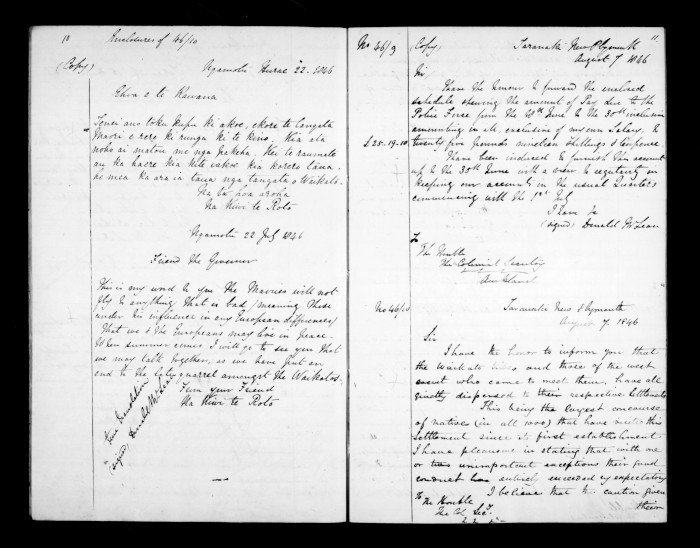 10 Enclosures of 46/10
(Copy)
Ngamotu Hurae 22. 1846
Ehoa e te Kawana
Tenei ano toku kupu ki a koe, ekore te longata
Maori e rere ki runga ki te kino. Kia ata
noho ai matou me nga pakeha. Kei te raumate
au ka haere kia kite iakoe kia korero taua.
he mea ka ara ia taua nga tangata o Waikato.
Na to hoa aroha
Na Kiwi te Roto
Ngamotu 22 July 1846
Friend the Governor
This is my word to you the Maories will not
fly to anything that is bad/meaning those
under his influence in any European differences/
That we & the Europeans may live in peace.
When summer comes I will go to see you that
we may talk together, as we have put an
end to the late quarrel amongst the Waikatos.
From your Friend
Na Kiwi te Roto
True translation
(signed) Donald McLean
11
No 46/9 (Copy) Taranaki New Plymouth
August 7 1846
Sir
I have the honour to forward the enclosed
schedule shewing the amount of Pay due to the
Police Force from the to the 30th June inclusive
amounting in all, exclusive of my own Salary, to
£25.19.10 twenty five pounds nineteen shillings & tenpence.
I have been induced to furnish this account
up to the 30th June with a view to regularity in
keeping our accounts in the usual Quarters
commencing with the 1st July
I have &c
(signed) Donald McLean
To
The Honble
The Colonial Secretary
Auckland
No 46/10 Taranaki New Plymouth
August 7. 1846
Sir
I have the honor to inform you that
the Waikato tribes and those of the west
coast who came to meet them, have all
quietly dispersed to their respective settlements
This being the largest concourse
of natives (in all 1000) that have visited this
settlement since its first establishment
I have pleasure in stating that with one
or two unimportant exceptions their good
conduct has entirely exceeded my expectations
I believe that the caution given
them
To
The Honble
The Col. Secy.